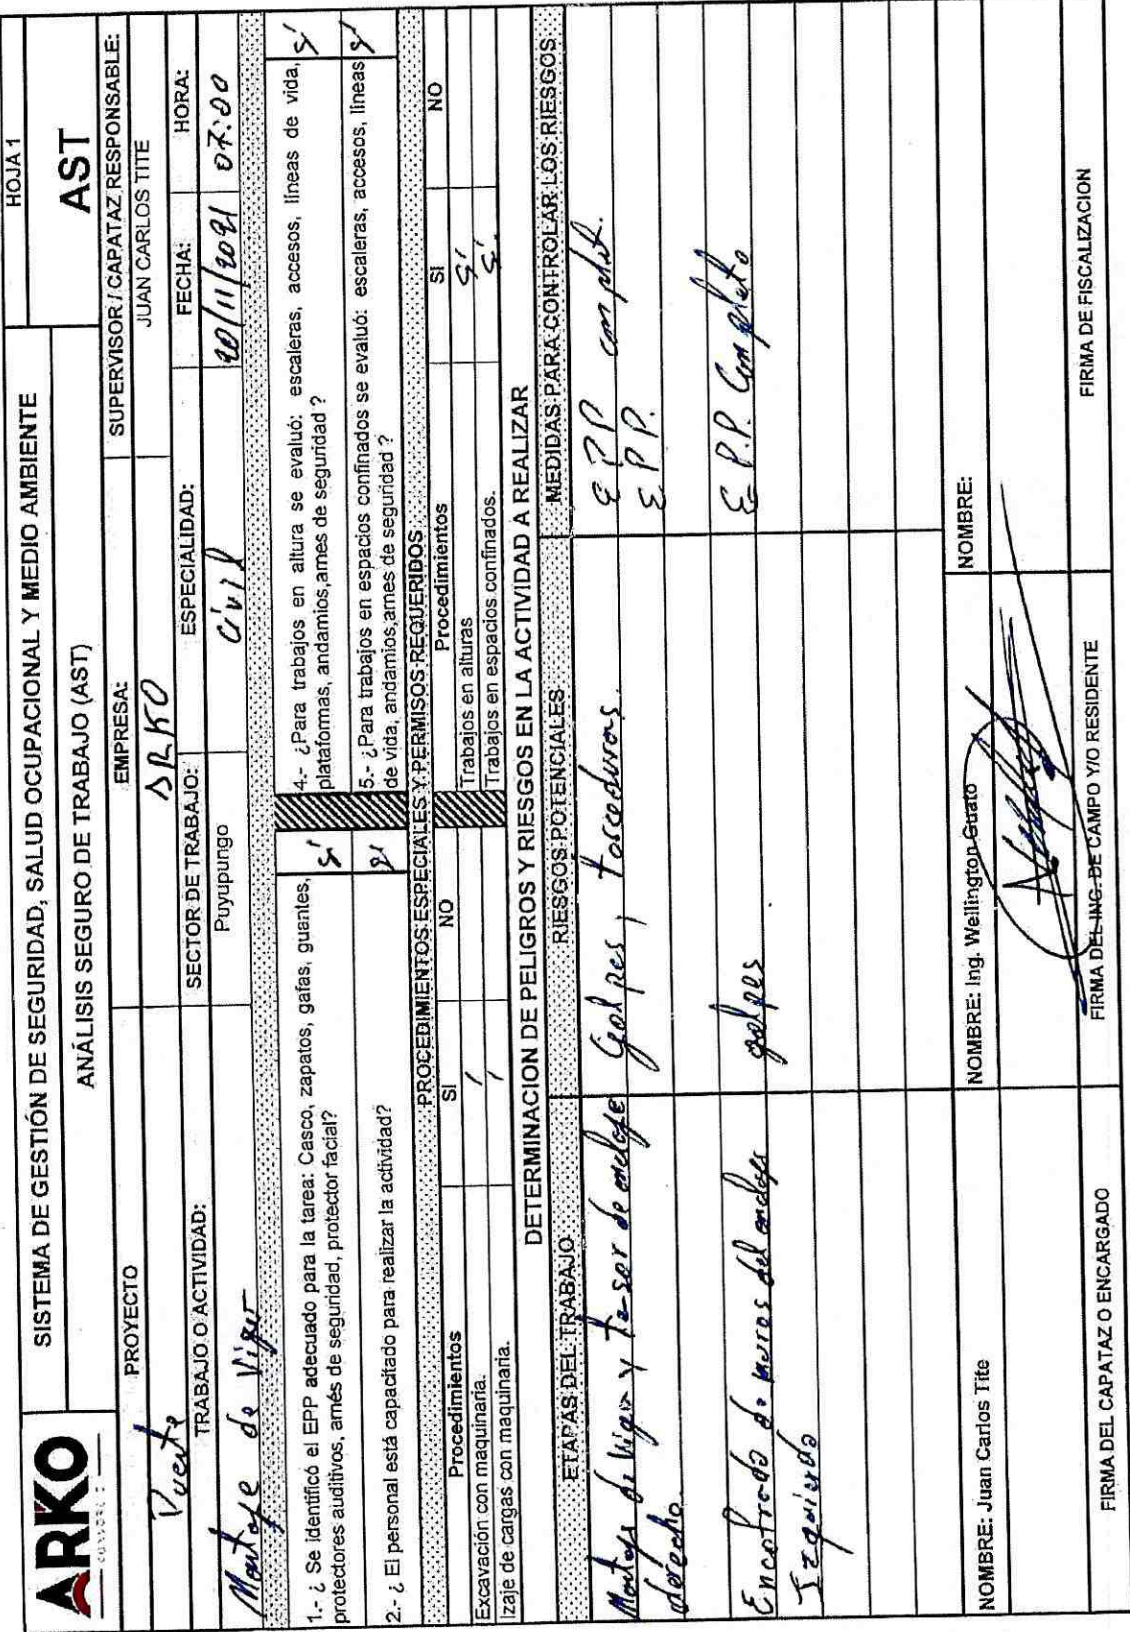 ARKO
SISTEMA DE GESTIÓN DE SEGURIDAD, SALUD OCUPACIONAL Y MEDIO AMBIENTE
HOJA 1
ANÁLISIS SEGURO DE TRABAJO (AST)
AST
PROYECTO
EMPRESA:
SUPERVISOR / CAPATAZ RESPONSABLE:
Puente
ARKO
JUAN CARLOS TITE
TRABAJO O ACTIVIDAD:
SECTOR DE TRABAJO:
ESPECIALIDAD:
FECHA:
HORA:
Montaje de Vigas
Puyupungo
Civil
20/11/2021
07:00
1.- ¿ Se identificó el EPP adecuado para la tarea: Casco, zapatos, gafas, guantes,
protectores auditivos, arnés de seguridad, protector facial?
sí
4.- ¿Para trabajos en altura se evaluó: escaleras, accesos, líneas de vida,
plataformas, andamios,arnes de seguridad ?
sí
2.- ¿ El personal está capacitado para realizar la actividad?
sí
5.- ¿Para trabajos en espacios confinados se evaluó: escaleras, accesos, líneas
de vida, andamios,arnes de seguridad ?
sí
PROCEDIMIENTOS ESPECIALES Y PERMISOS REQUERIDOS
Procedimientos
SI
NO
Procedimientos
SI
NO
Excavación con maquinaria.
/
Trabajos en alturas
sí
Izaje de cargas con maquinaria.
/
Trabajos en espacios confinados.
sí.
DETERMINACION DE PELIGROS Y RIESGOS EN LA ACTIVIDAD A REALIZAR
ETAPAS DEL TRABAJO
RIESGOS POTENCIALES
MEDIDAS PARA CONTROLAR LOS RIESGOS
Montaje de Vigas y Tensor de anclaje
Golpes, torceduras.
EPP complet.
derecho.
EPP.
Encofrado de muros del anclaje
golpes
E.P.P. Completo
Izquierdo
NOMBRE: Juan Carlos Tite
NOMBRE: Ing. Wellington Guato
NOMBRE:
FIRMA DEL CAPATAZ O ENCARGADO
FIRMA DEL ING. DE CAMPO Y/O RESIDENTE
FIRMA DE FISCALIZACION